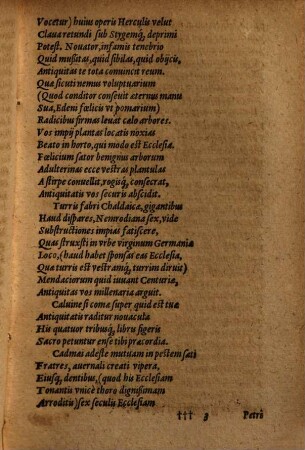 Vocetur) huius operis Herculis velut
Claua retundi sub Stygemq́, deprimi
Potest. Nouator, infamis tenebrio
Quid mussitas, quid sibilas, quid obijcis,
Antiquitas te tota conuincit reum.
Quæ sicuti nemus voluptuarium
(Quod conditor conseuit æternus manu
Sua, Edeni fœlicis vt pomarium)
Radicibus firmas leuat calo arbores.
Vos impij plantas locatis noxias
Beato in horto, qui modo est Ecclesiæ.
Fœlicium sator benignus arborum
Adulterinas ecce vestras plantulas
A stirpe conuellit, rogisq́, consecrat,
Antiquitatis vos securis abscidit.
Turris fabri Chaldaica, gigantibus
Haud dispares, Nemrodiana sex, vide
Substructiones impias fatiscere,
Quas struxsti in vrbe virginum Germaniæ
Loco, (haud habet sponsas eas Ecclesia,
Quæ turris est vestramq́, turrim diruit)
Mendaciorum quid iuuant Centuriæ,
Antiquitas vos millenaria arguit.
Caluine si comæ super quid est tuæ
Antiquitatis raditur nouacula
His quatuor tribusq́, libris figeris
Sacro petuntur ense tibi præcordia.
Cadmæa adeste mutuam in pestem sati
Fratres, auernali creati vipera,
Eiusq́, dentibus, (quod his Ecclesiam
Tonantis vnicè thoro dignissimam
Arroditis) sex seculis Ecclesiam
††† 3 Petrô